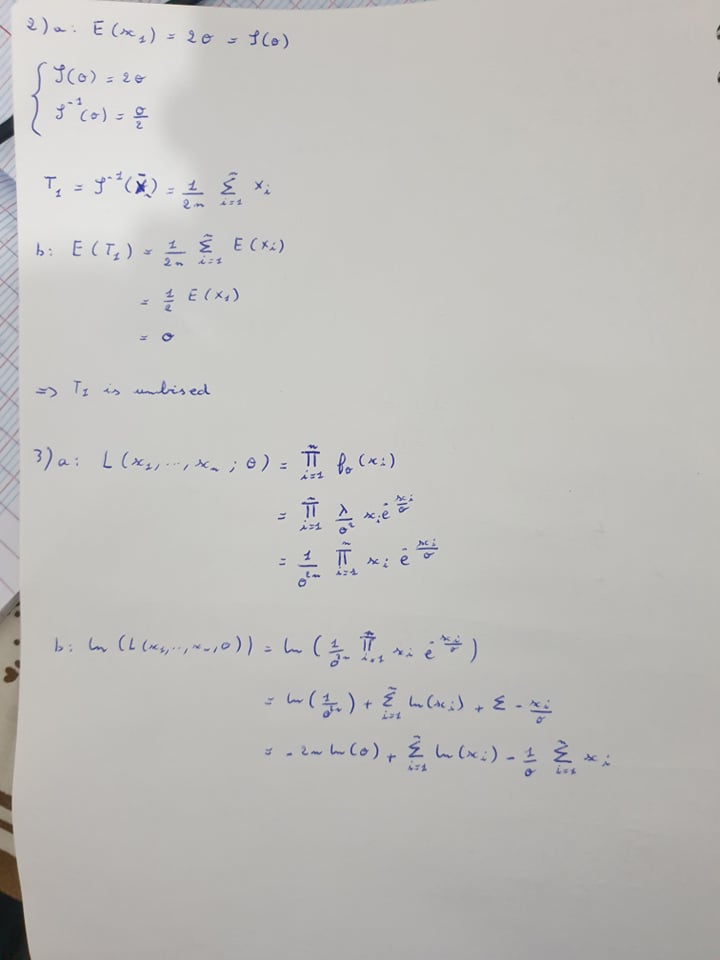 2) a: E(x₁) = 2θ = φ(θ)
φ(θ) = 2θ
φ⁻¹(θ) = θ/2
T₁ = φ⁻¹(X̄) = 1/2n Σⁿᵢ₌₁ xᵢ
b: E(T₁) = 1/2n Σⁿᵢ₌₁ E(xᵢ)
= 1/2 E(x₁)
= θ
=> T₁ is unbised
3) a: L(x₁, ..., xₙ ; θ) = Πⁿᵢ₌₁ f_θ(xᵢ)
= Πⁿᵢ₌₁ 1/θ² xᵢ e^(-xᵢ/θ)
= 1/θ²ⁿ Πⁿᵢ₌₁ xᵢ e^(-xᵢ/θ)
b: ln(L(x₁, .., xₙ, θ)) = ln(1/θ²ⁿ Πⁿᵢ₌₁ xᵢ e^(-xᵢ/θ))
= ln(1/θ²ⁿ) + Σⁿᵢ₌₁ ln(xᵢ) + Σ - xᵢ/θ
= - 2n ln(θ) + Σⁿᵢ₌₁ ln(xᵢ) - 1/θ Σⁿᵢ₌₁ xᵢ